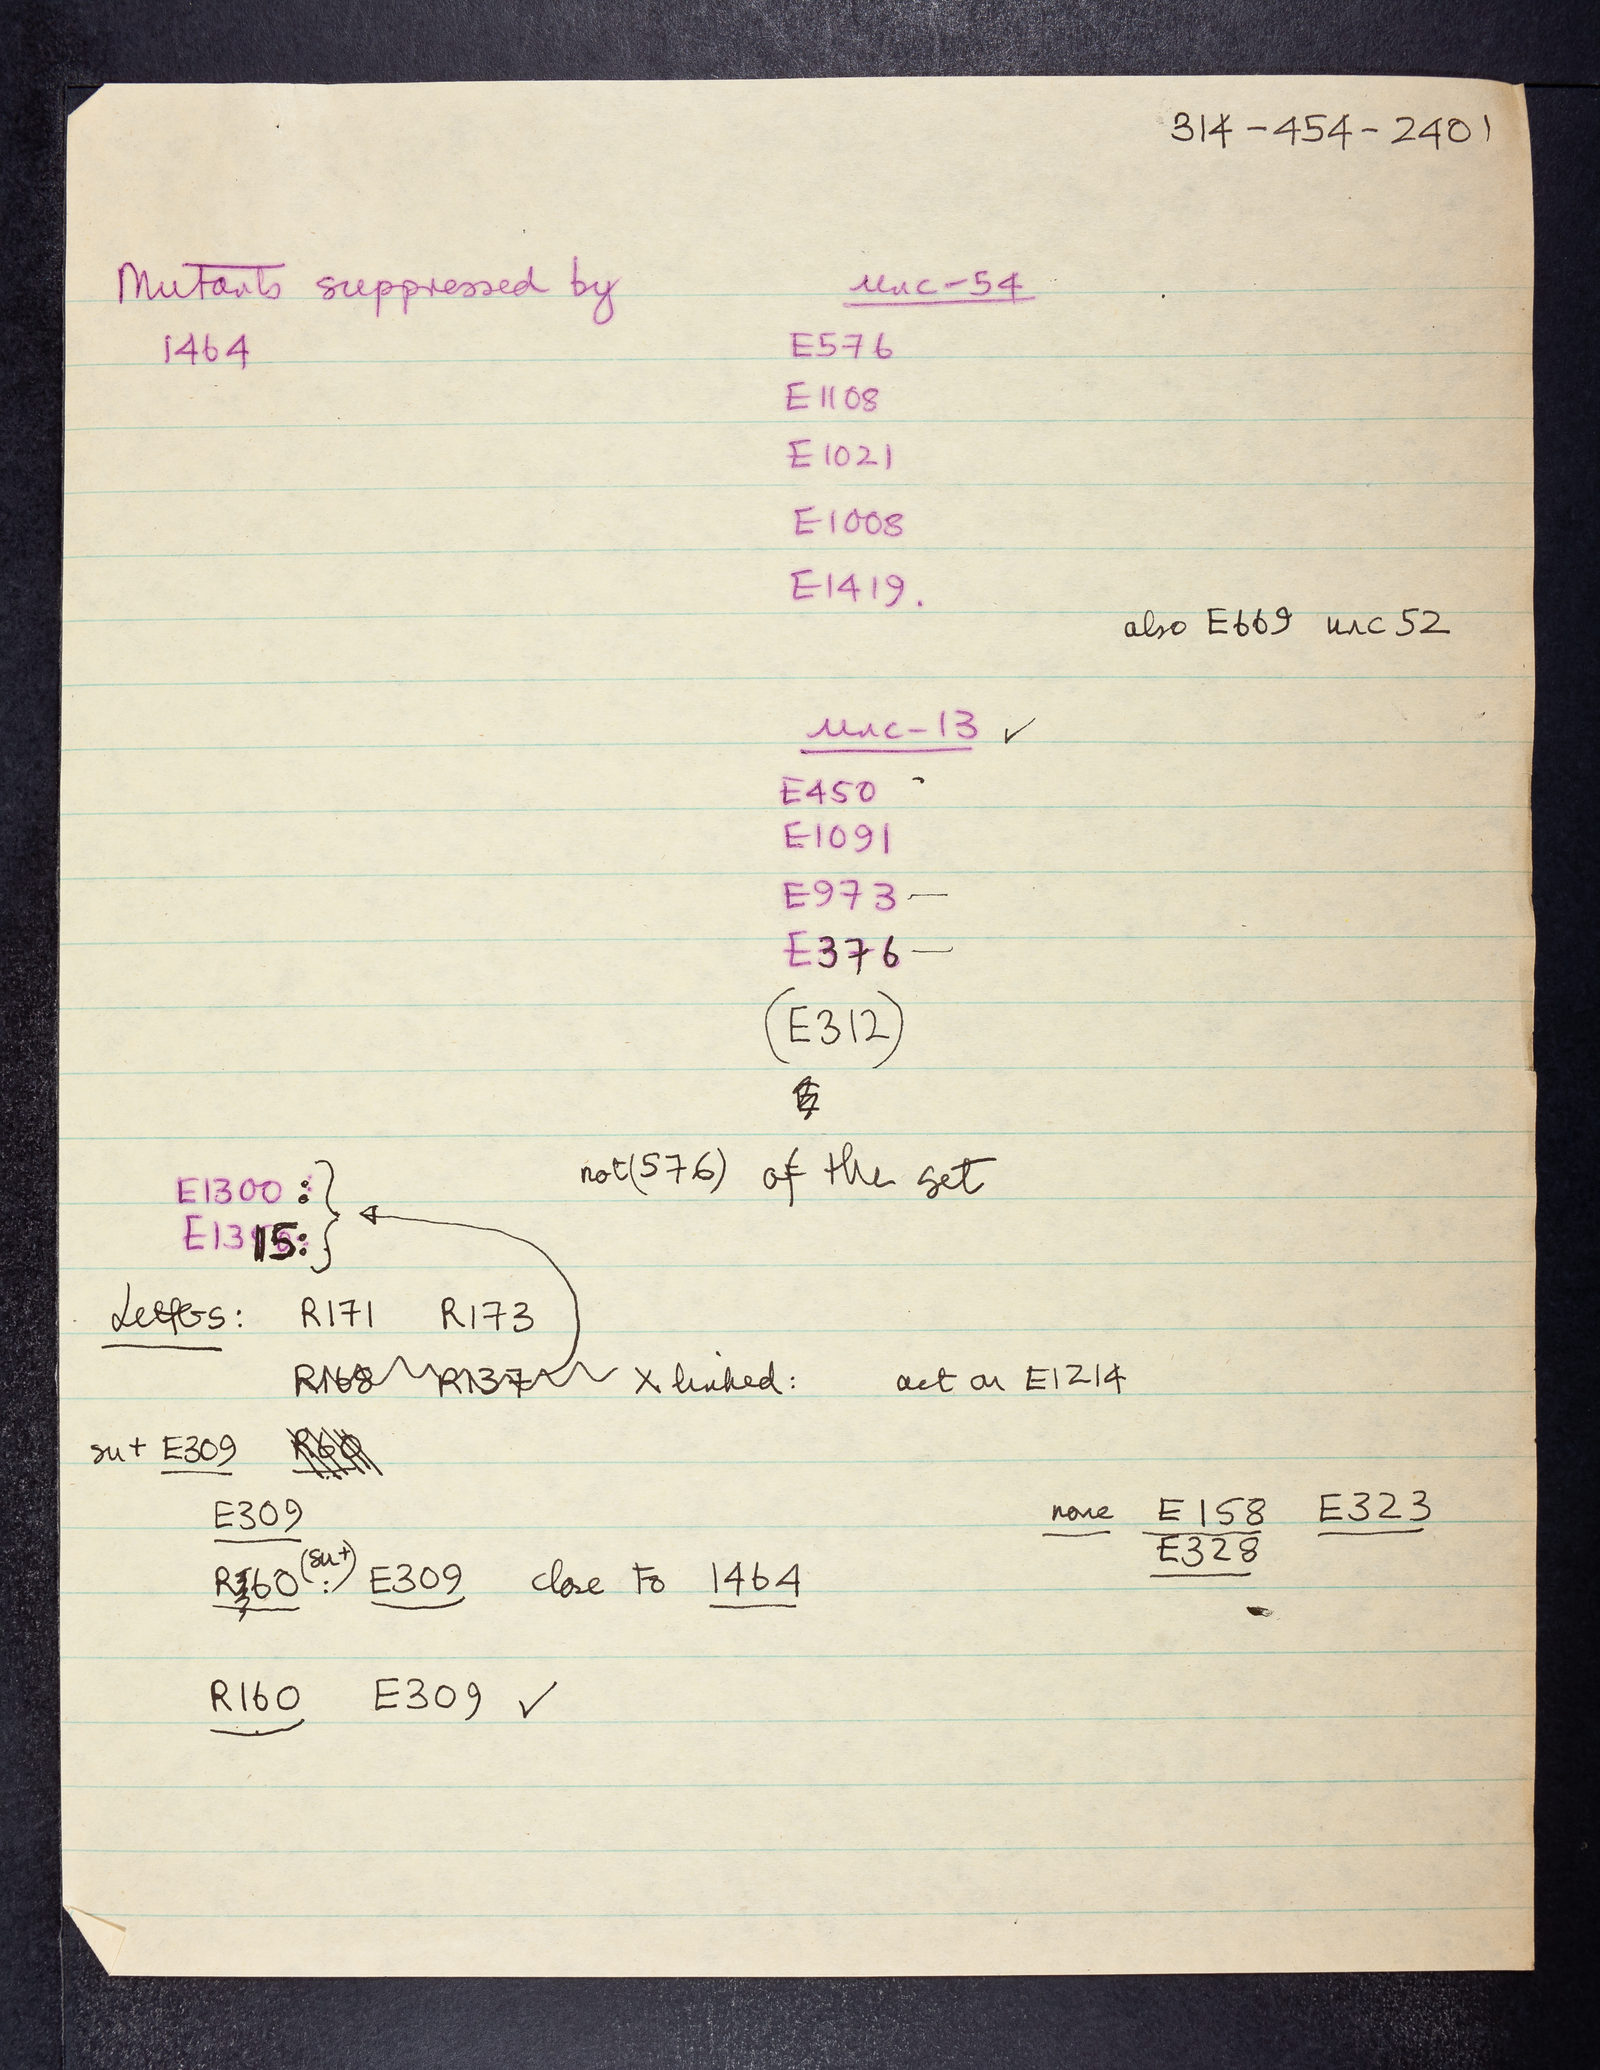 314-454-2401
Mutants suppressed by
1464
unc-54
E576
E1108
E1021
E1008
E1419.
also E669 unc 52
unc-13 ✓
E450
E1091
E973 —
E376 —
(E312)
not (576) of the set
E1300 :
E1315:
Letters: R171 R173
R168 R137 X linked: act on E1214
su+ E309 R160
E309
none E158 E323
E328
R160 (su+) : E309 close to 1464
R160 E309 ✓